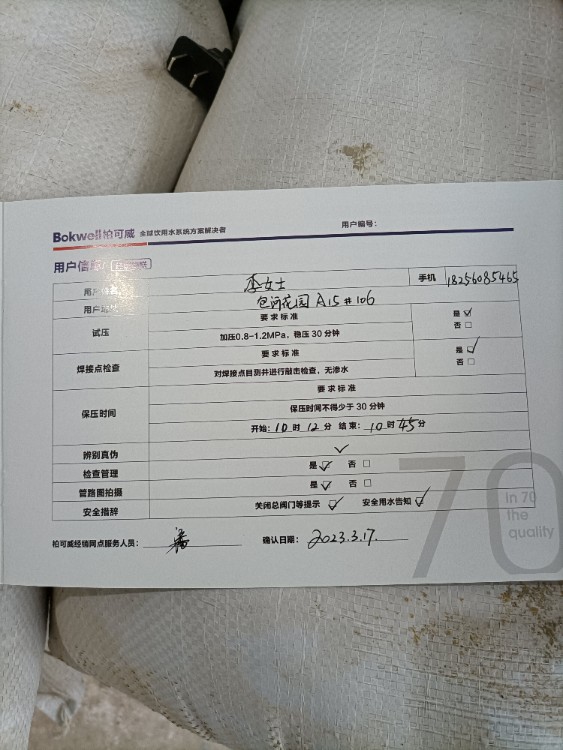 Bokwell柏可威 全球饮用水系统方案解决者
用户编号：
用户信息
李女士 手机 18256085465
用户地址 包河花园 A15#106
试压 要求标准 是 ☑
加压0.8-1.2MPa，稳压30分钟 否 □
焊接点检查 要求标准 是 ☑
对焊接点目测并进行敲击检查，无渗水 否 □
保压时间 要求标准
保压时间不得少于30分钟
开始：10时12分 结束：10时45分
辨别真伪 ✓
检查管理 是 ☑ 否 □
管路图拍摄 是 ☑ 否 □
安全措辞 关闭总阀门等提示 ☑ 安全用水告知 ☑
柏可威经销网点服务人员： 确认日期： 2023.3.17.
70
In 70
the
quality